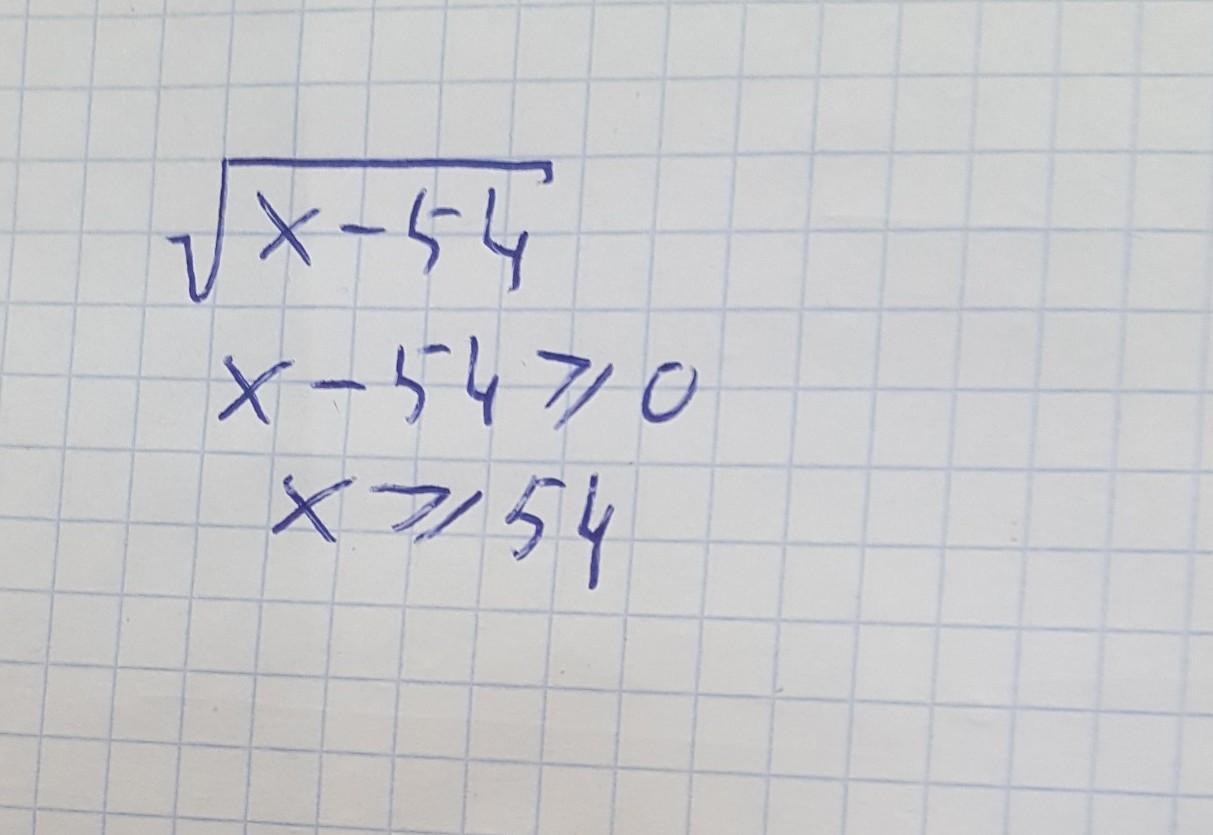 √x-54
x-54⩾0
x⩾54